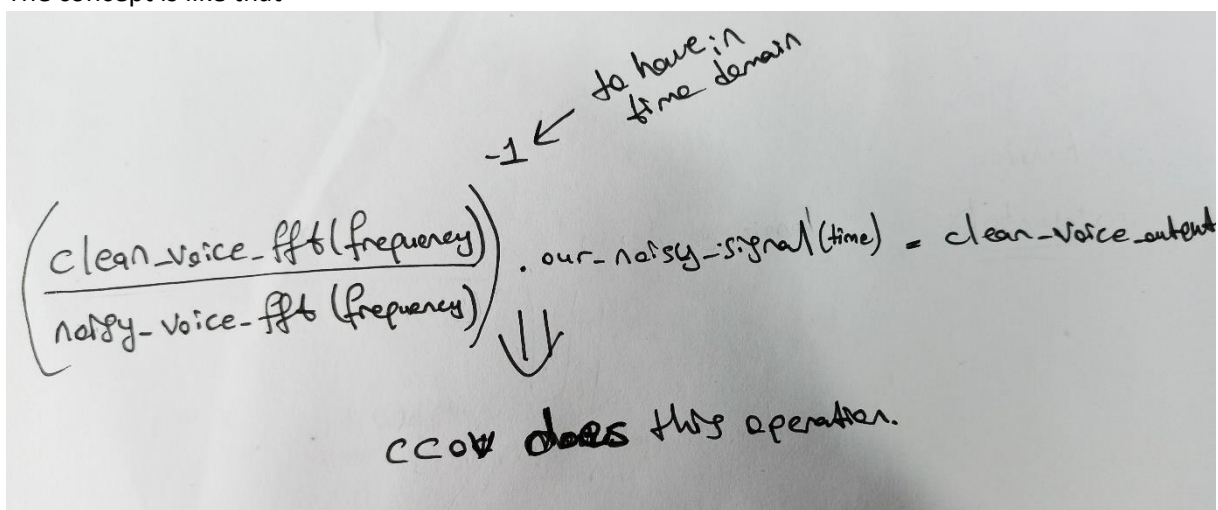 The concept is like that
to have in
time domain
-1
clean_voice_fft(frequency)
noisy_voice_fft(frequency)
. our_noisy_signal(time) = clean_voice_output
ccov does this operation.